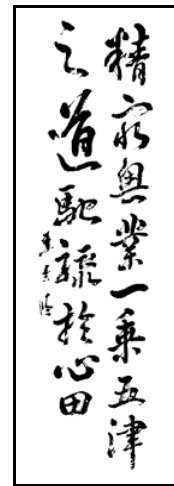 精窮奧業一乘五律
之道馳驟於心田